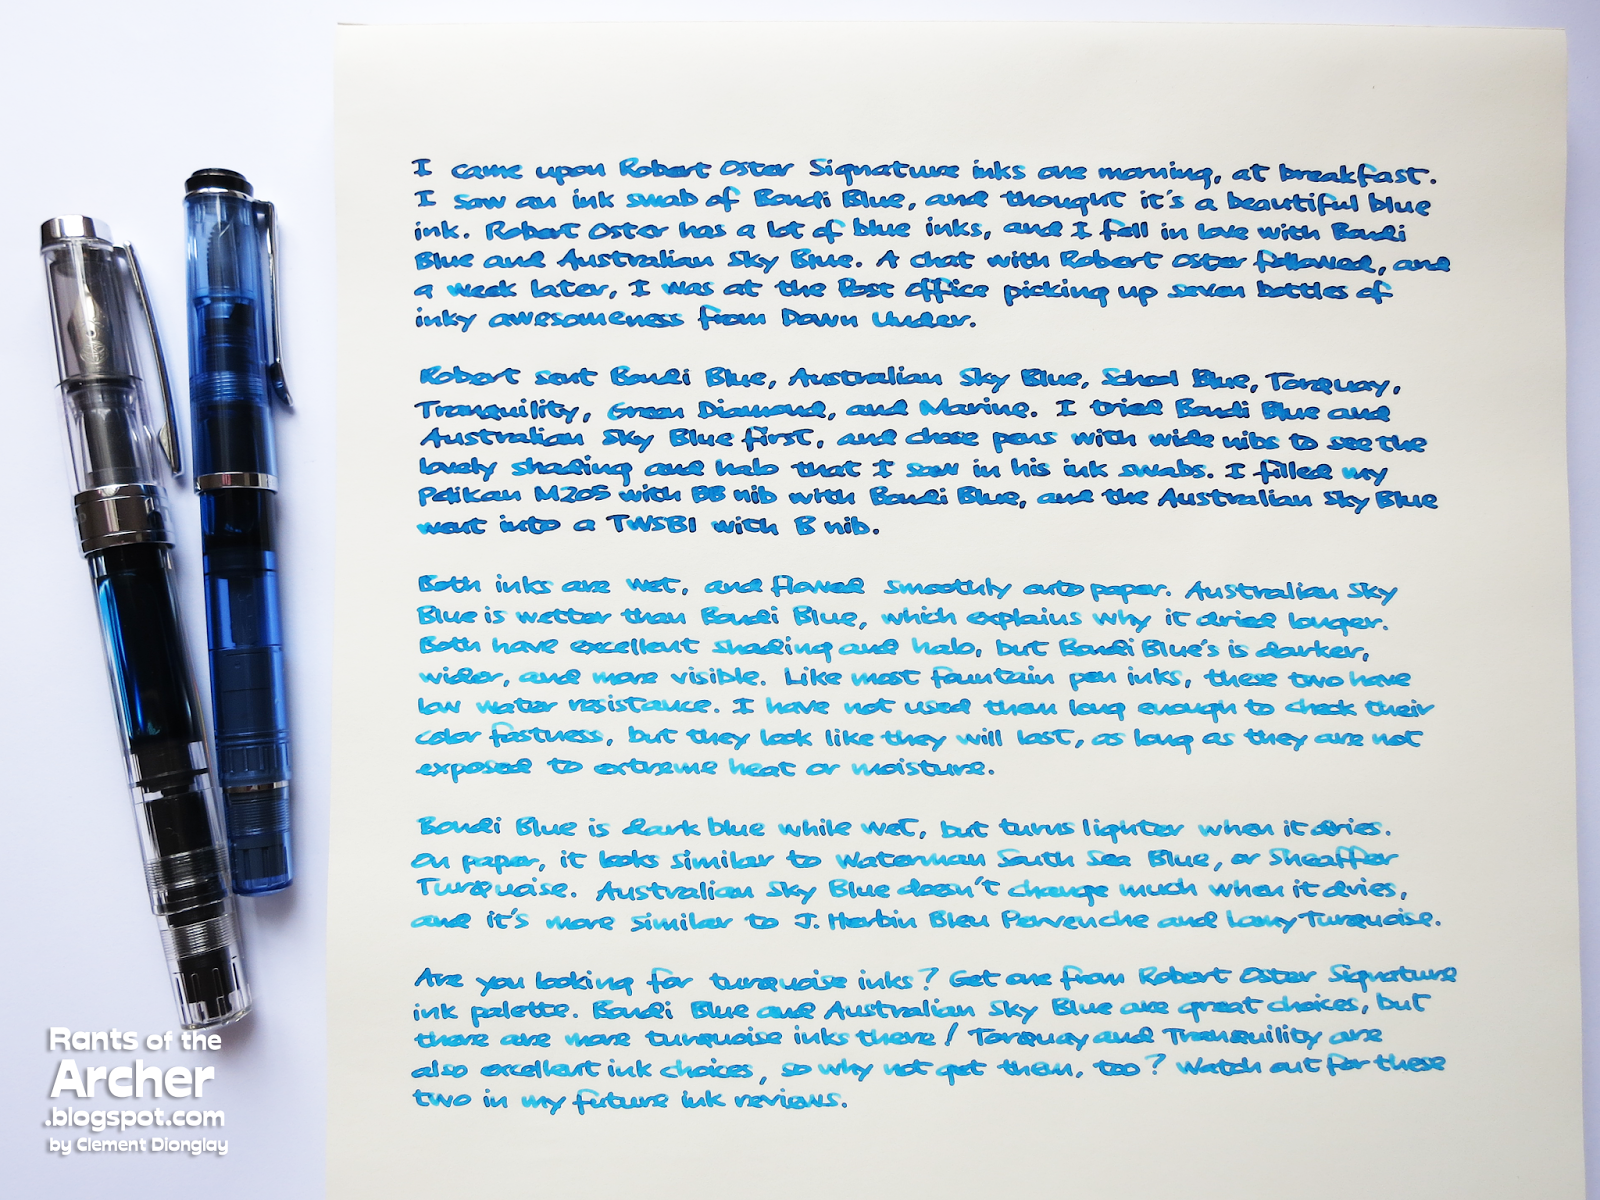 I came upon Robert Oster Signature inks one morning, at breakfast.
I saw an ink swab of Bondi Blue, and thought it's a beautiful blue
ink. Robert Oster has a lot of blue inks, and I fell in love with Bondi
Blue and Australian Sky Blue. A chat with Robert Oster followed, and
a week later, I was at the Post Office picking up seven bottles of
inky awesomeness from Down Under.
Robert sent Bondi Blue, Australian Sky Blue, School Blue, Torquay,
Tranquility, Green Diamond, and Marine. I tried Bondi Blue and
Australian Sky Blue first, and chose pens with wide nibs to see the
lovely shading and halo that I saw in his ink swabs. I filled my
Pelikan M205 with BB nib with Bondi Blue, and the Australian Sky Blue
went into a TWSBI with B nib.
Both inks are wet, and flowed smoothly onto paper. Australian Sky
Blue is wetter than Bondi Blue, which explains why it dried longer.
Both have excellent shading and halo, but Bondi Blue's is darker,
wider, and more visible. Like most fountain pen inks, these two have
low water resistance. I have not used them long enough to check their
color fastness, but they look like they will last, as long as they are not
exposed to extreme heat or moisture.
Bondi Blue is dark blue while wet, but turns lighter when it dries.
On paper, it looks similar to Waterman South Sea Blue, or Sheaffer
Turquoise. Australian Sky Blue doesn't change much when it dries,
and it's more similar to J. Herbin Bleu Pervenche and Lamy Turquoise.
Are you looking for turquoise inks? Get one from Robert Oster Signature
ink palette. Bondi Blue and Australian Sky Blue are great choices, but
there are more turquoise inks there! Torquay and Tranquility are
also excellent ink choices, so why not get them, too? Watch out for these
two in my future ink reviews.
Rants of the
Archer
.blogspot.com
by Clement Dionglay